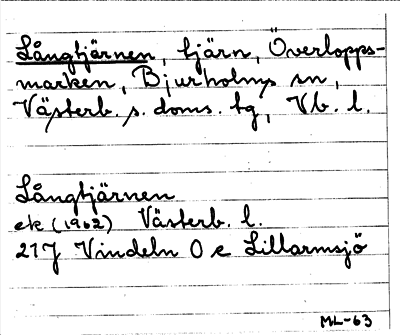 Långtjärnen, tjärn, Överlopps-
marken, Bjurholms sn,
Västerb. s. doms. tg, Vb. l.
Långtjärnen
ek (1962) Västerb. l.
21J Vindeln 0 e Lillarmsjö
ML-63